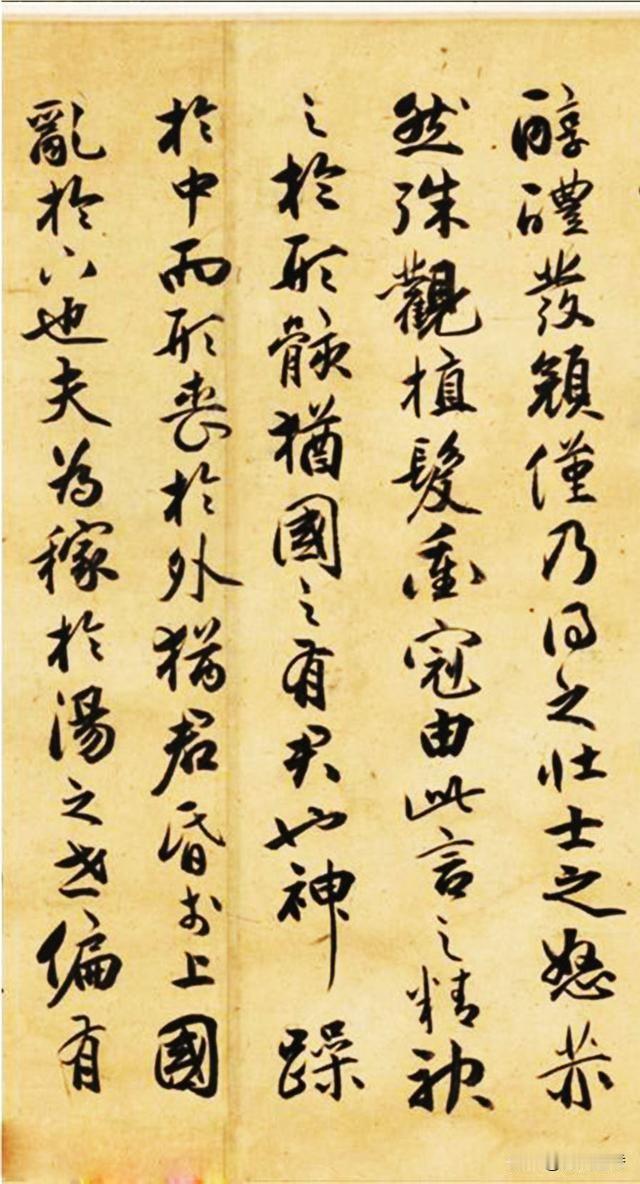 醇醴發顏僅乃得之壯士之怒赫
然殊觀植髮衝冠由此言之精神
之於形骸猶國之有君也神躁
於中而形喪於外猶君昏於上國
亂於下也夫為稼於湯之世偏有